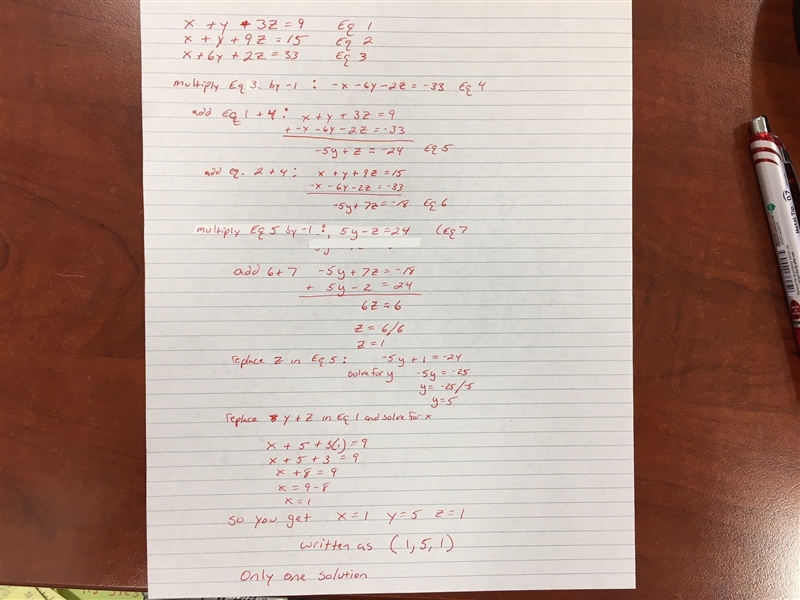 x + y + 3z = 9 Eq 1
x + y + 9z = 15 Eq 2
x + 6y + 2z = 33 Eq 3
multiply Eq 3 by -1 : -x - 6y - 2z = -33 Eq 4
add Eq 1 + 4 : x + y + 3z = 9
+ -x - 6y - 2z = -33
-5y + z = -24 Eq 5
add eq. 2 + 4 : x + y + 9z = 15
-x - 6y - 2z = -33
-5y + 7z = -18 Eq 6
multiply Eq 5 by -1 : 5y - z = 24 (Eq 7
add 6 + 7 -5y + 7z = -18
+ 5y - z = 24
6z = 6
z = 6/6
z = 1
replace z in Eq 5 : -5y + 1 = -24
solve for y -5y = -25
y = -25/-5
y = 5
replace y + z in Eq 1 and solve for x
x + 5 + 3(1) = 9
x + 5 + 3 = 9
x + 8 = 9
x = 9 - 8
x = 1
so you get x = 1 y = 5 z = 1
written as (1, 5, 1)
Only one solution
0.7